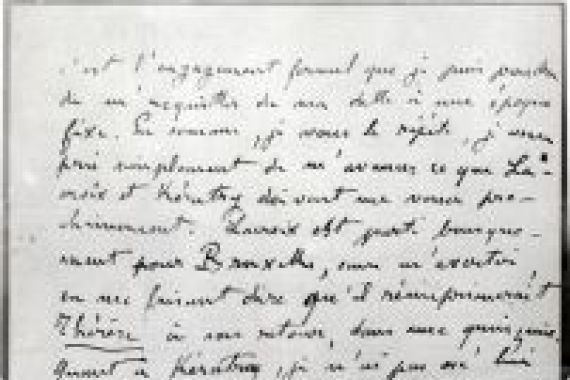 c'est l'engagement formel que je puis prendre
de m'acquitter de ma dette à une époque
fixe. En somme, je vous le répète, je vous
prie simplement de m'avancer ce que La-
croix et Kératry doivent me verser pro-
chainement. Lacroix est parti brusque-
ment pour Bruxelles, sans m'avertir,
en me faisant dire qu'il réimprimerait
Thérèse à son retour, dans une quinzaine.
Quant à Kératry, je n'ai pas osé lui